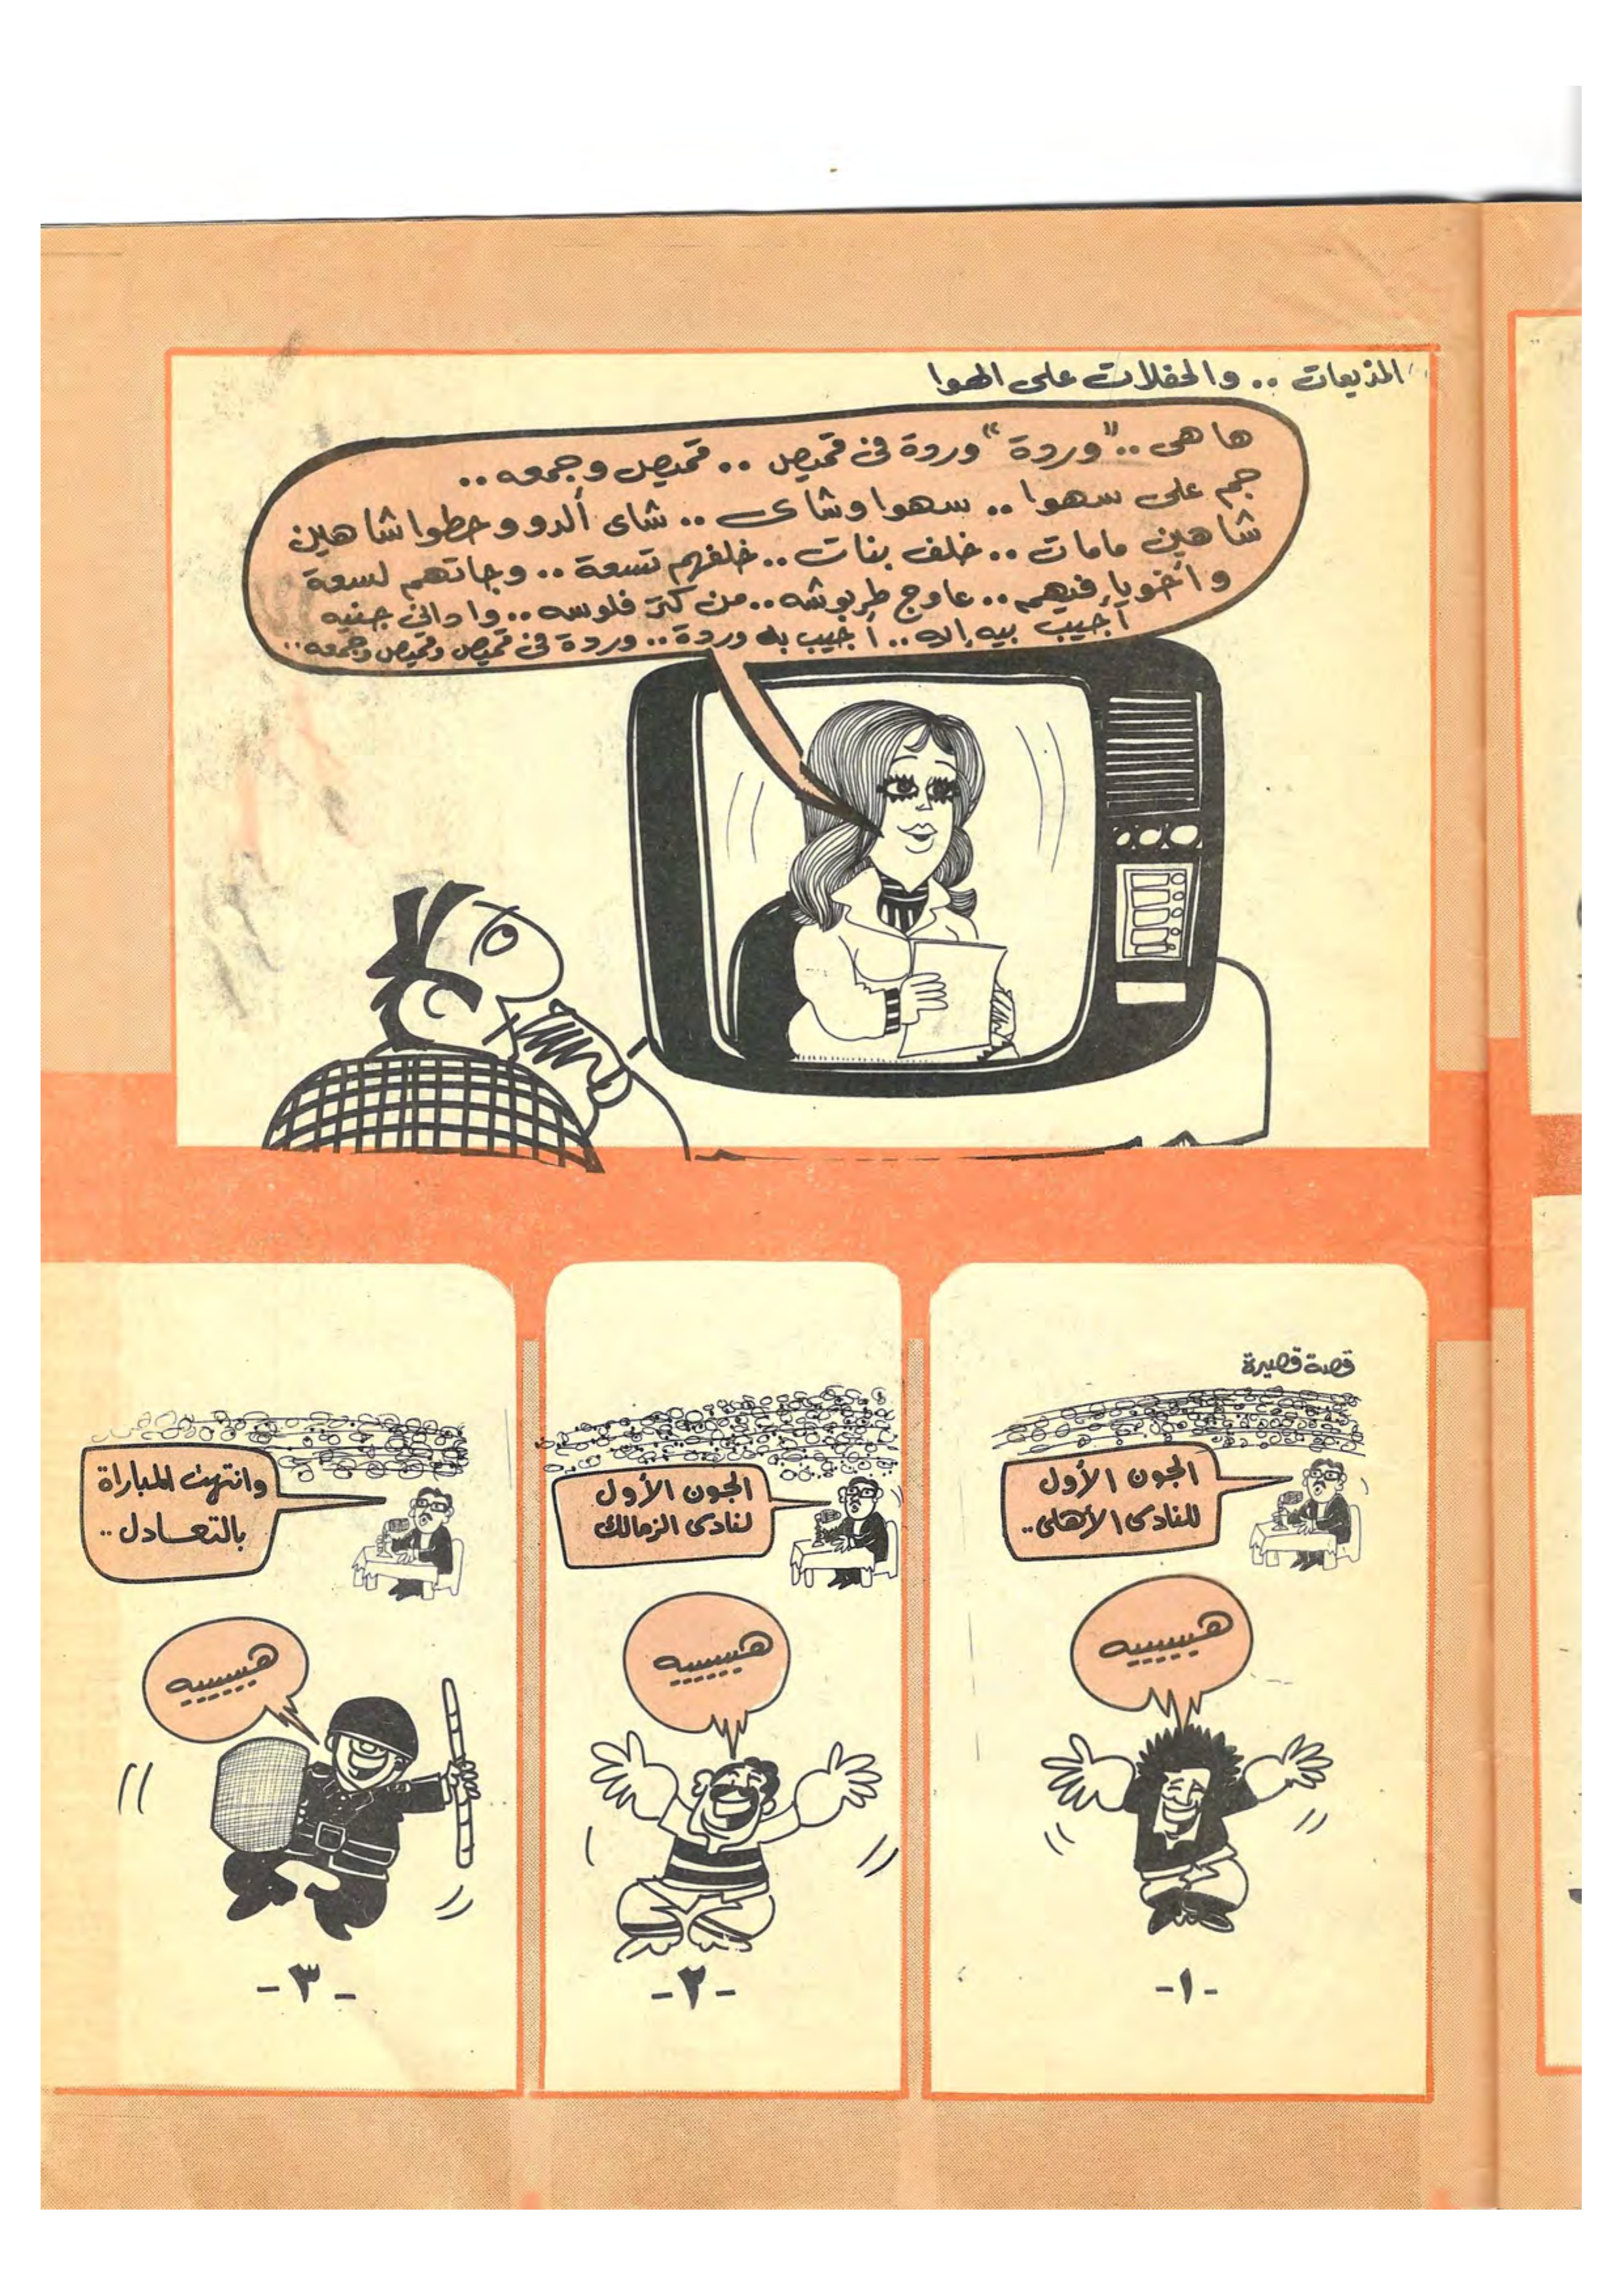 المذيعات .. والحفلات على الهوا
ها هى .. "وردة" وردة فى قميص .. قميص وجمعه ..
جم على سهوا .. سهوا وشاى .. شاى ألدو وحطوا شاهين
شاهين مامات .. خلف بنات .. خلفهم تسعة .. وجاتهم لسعة
وأخويا فيهم .. عاوج طربوشه .. من كتر فلوسه .. وادانى جنيه
أجيب بيه إيه .. أجيب به وردة .. وردة فى قميص وقميص وجمعه ..
قصة قصيرة
الجون الأول
للنادى الأهلى ..
هييييييه
-١-
الجون الأول
لنادى الزمالك
هييييييه
-٢-
وانتهت المباراة
بالتعادل ..
هييييييه
-٣-